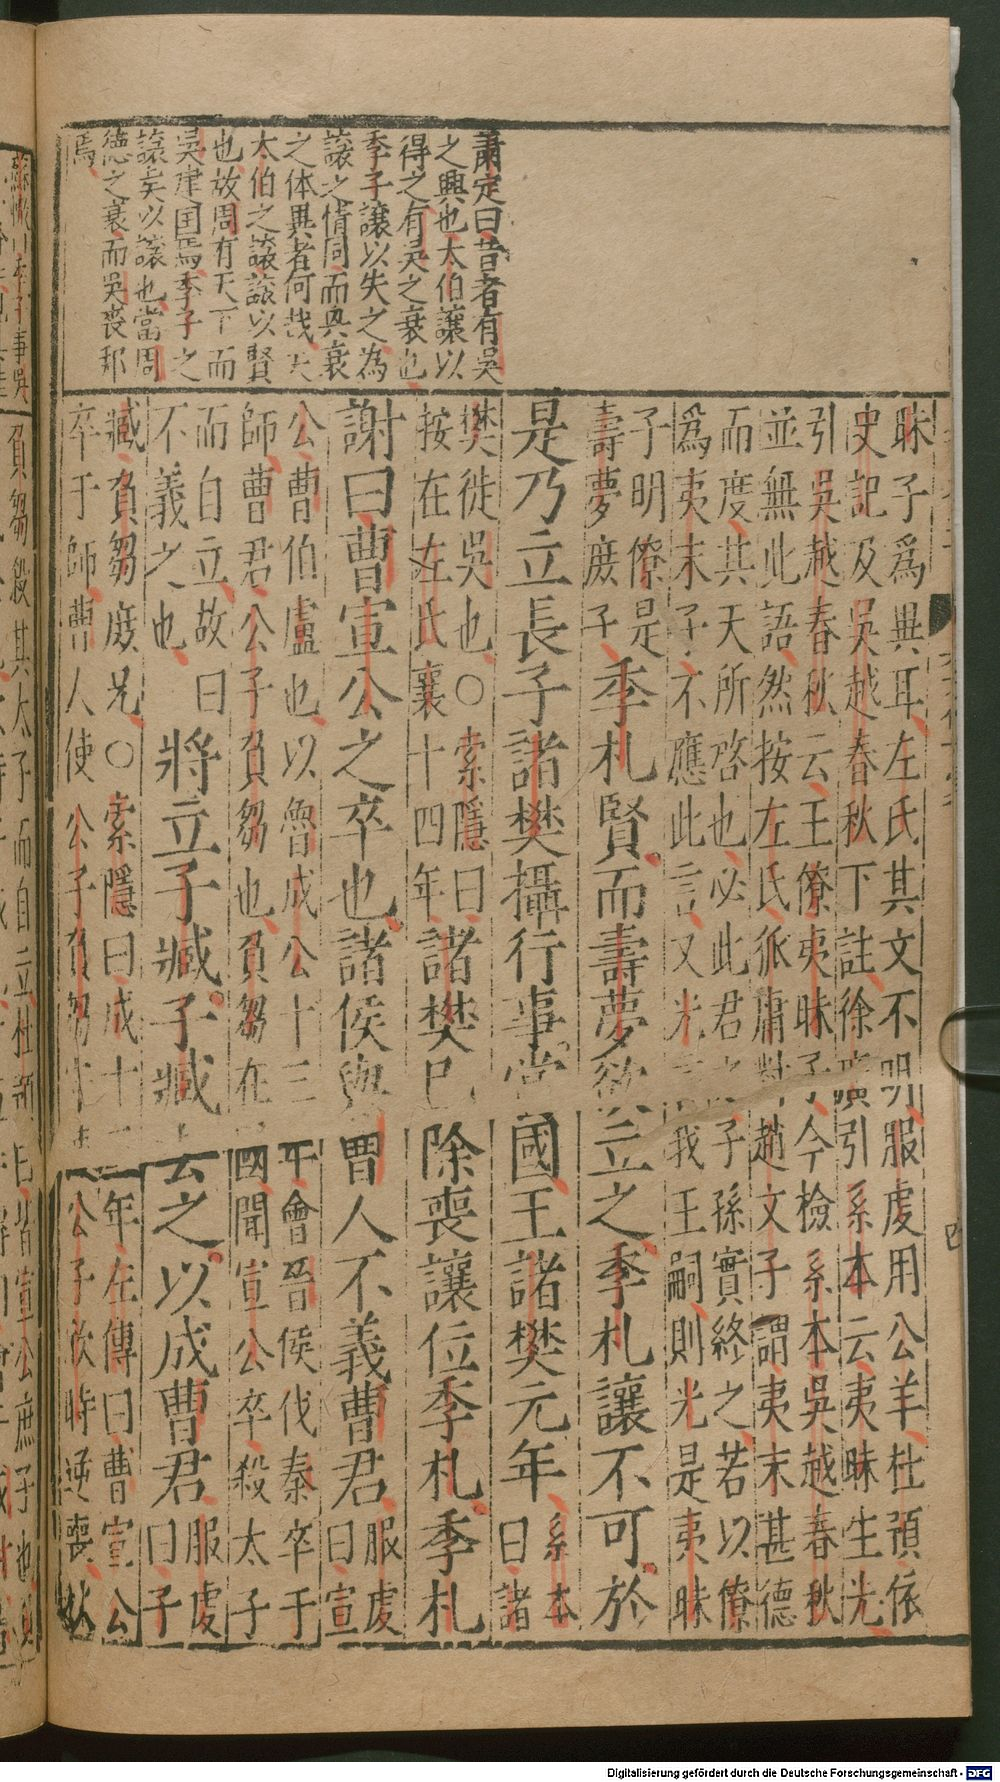 蕭定曰昔者有吳
之興也太伯讓以
得之有吳之衰也
季子讓以失之為
讓之情同而興衰
之体異者何哉
太伯之讓讓以賢
也故周有天下而
吳建国焉季子之
讓矣以讓也當周
德之衰而吳喪邦
焉
昧子爲異耳左氏其文不明服虔用公羊杜預依
史記及吳越春秋下註徐廣引系本云夷昧生光
引吳越春秋云王僚夷昧子今檢系本吳越春秋
並無此語然按左氏狐庸對趙文子謂夷末甚德
而度其天所啓也必此君之子孫實終之若以僚
爲夷末子不應此言又光言我王嗣則光是夷昧
子明僚是
壽夢庶子季札賢而壽夢欲立之季札讓不可於
是乃立長子諸樊攝行事當國王諸樊元年系本曰諸
樊徙吳也○索隱曰
按在左氏襄十四年諸樊巳除喪讓位季札季札
謝曰曹宣公之卒也諸侯與曹人不義曹君服虔曰宣
公曹伯盧也以魯成公十三年會晉侯伐秦卒于
師曹君公子負芻也負芻在國聞宣公卒殺太子
而自立故曰
不義之也將立子臧子臧去之以成曹君服虔曰子
臧負芻庶兄○索隱曰成十三年左傳曰曹宣公
卒于師曹人使公子負芻守使公子欣時逆喪秋
負芻殺其太子而自立杜預曰皆宣公庶子也負
Digitalisierung gefördert durch die Deutsche Forschungsgemeinschaft - DFG